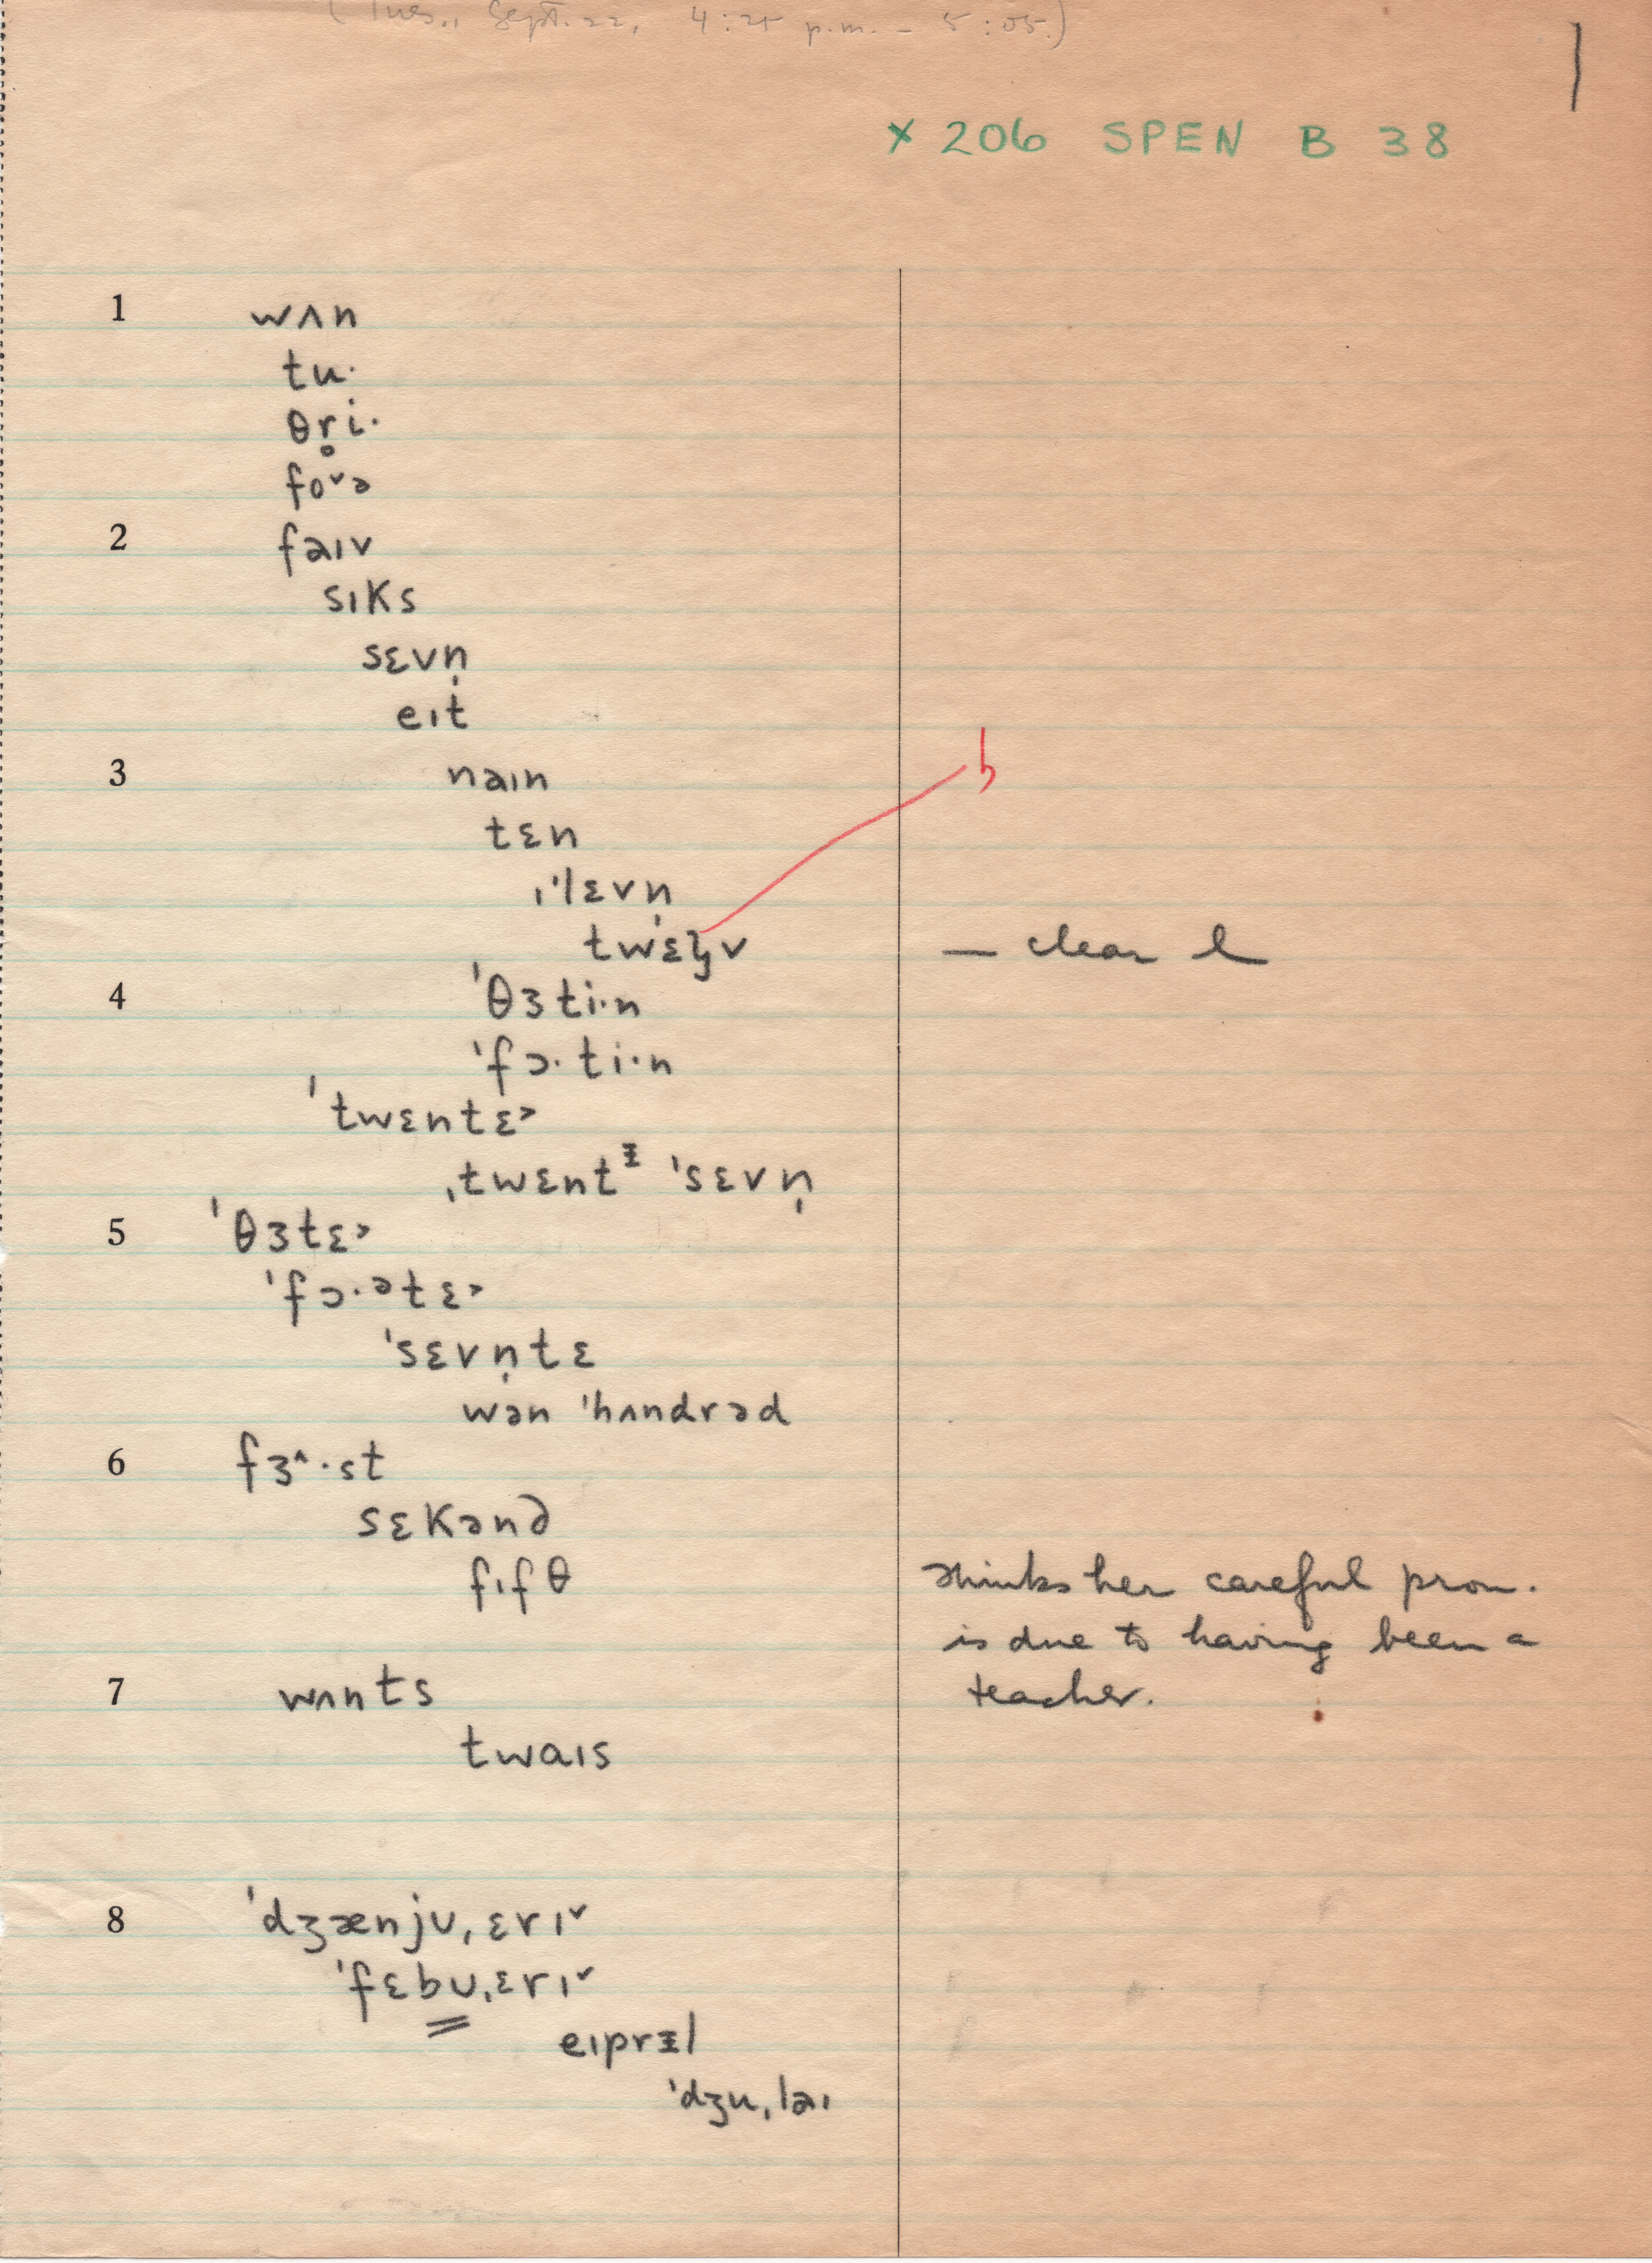 (Tues., Sept. 22, 4:25 p.m. - 5:05.)
1
× 206 SPEN B 38
1 wʌn
tu·
θr̥i·
fo˅ə
2 faɪv
sɪks
sɛvn̩
eɪt
3 naɪn
tɛn
ɪˈlɛvn̩
twɛl̡v — clear l
4 ˈθɜti·n
ˈfɔ·ti·n
ˈtwɛntɛ˃
ˌtwɛntᵻ ˈsɛvn̩
5 ˈθɜtɛ˃
ˈfɔ·ᵊtɛ˃
ˈsɛvn̩tɛ
wən ˈhʌndrəd
6 fɜ˄·st
sɛkənd
fɪfθ thinks her careful pron.
is due to having been a
7 wʌnts teacher.
twaɪs
8 ˈdʒænjʊˌɛrɪ˅
ˈfɛbʊˌɛrɪ˅
eɪprᵻl
ˈdʒuˌlaɪ